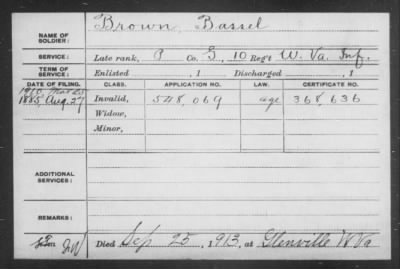 NAME OF SOLDIER: Brown, Bassel
SERVICE: Late rank, P Co. G, 10 Reg't W. Va. Inf.
TERM OF SERVICE: Enlisted , 1 Discharged , 1
DATE OF FILING. CLASS. APPLICATION NO. LAW. CERTIFICATE NO.
1910, Mar 25
1885, Aug. 27 Invalid, 548,069 age 368,636
Widow,
Minor,
ADDITIONAL SERVICES:
REMARKS:
Died Sep 25, 1913, at Glenville W Va